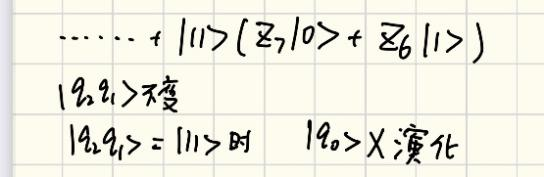 ...... + |11>(Z₇|0> + Z₆|1>)
|q₂q₁>不变
|q₂q₁> = |11>时 |q₀> X 演化